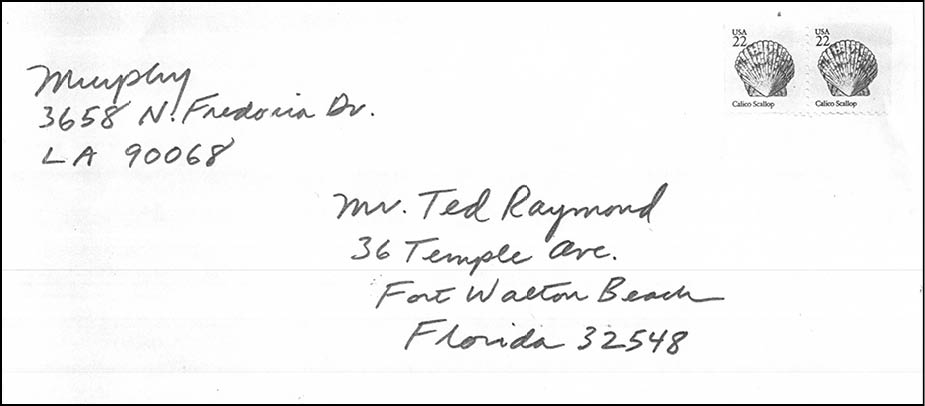 USA
22
Calico Scallop
USA
22
Calico Scallop
Murphy
3658 N. Fredonia Dr.
LA 90068
Mr. Ted Raymond
36 Temple Ave.
Fort Walton Beach
Florida 32548